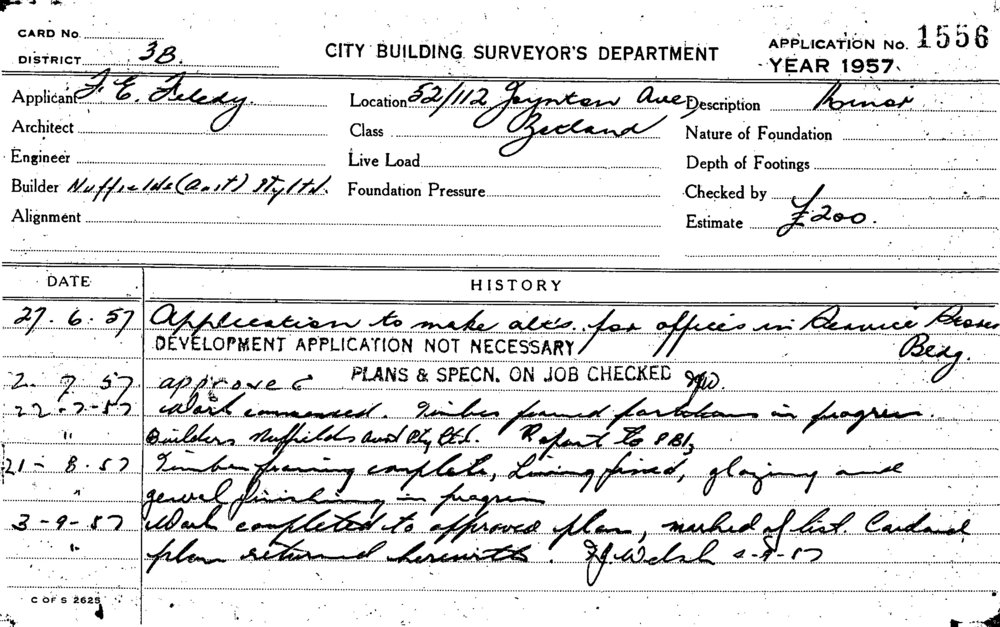 CARD No.
DISTRICT 3B.
CITY BUILDING SURVEYOR'S DEPARTMENT
APPLICATION No. 1556
YEAR 1957.
Applicant F. E. Feledy.
Location 52/112 Joynton Ave,
Description Minor
Architect
Class Zetland
Nature of Foundation
Engineer
Live Load
Depth of Footings
Builder Nuffields (Aust) Pty Ltd.
Foundation Pressure
Checked by
Alignment
Estimate £200.
DATE
HISTORY
27. 6. 57 Application to make alts. for offices in Service
Bldg.
DEVELOPMENT APPLICATION NOT NECESSARY
2. 7. 57 approved PLANS & SPECN. ON JOB CHECKED
22-7-57 Work commenced. Timber framed partitions in progress.
" Builders Nuffields Aust Pty Ltd. Report to
21-8.57 Timber framing complete, Lining fixed, glazing and
" general finishing in progress
3-9-57 Work completed to approved plan, marked off list. Card and
" plan returned herewith. Welsh 3-9-57
C OF S 2625